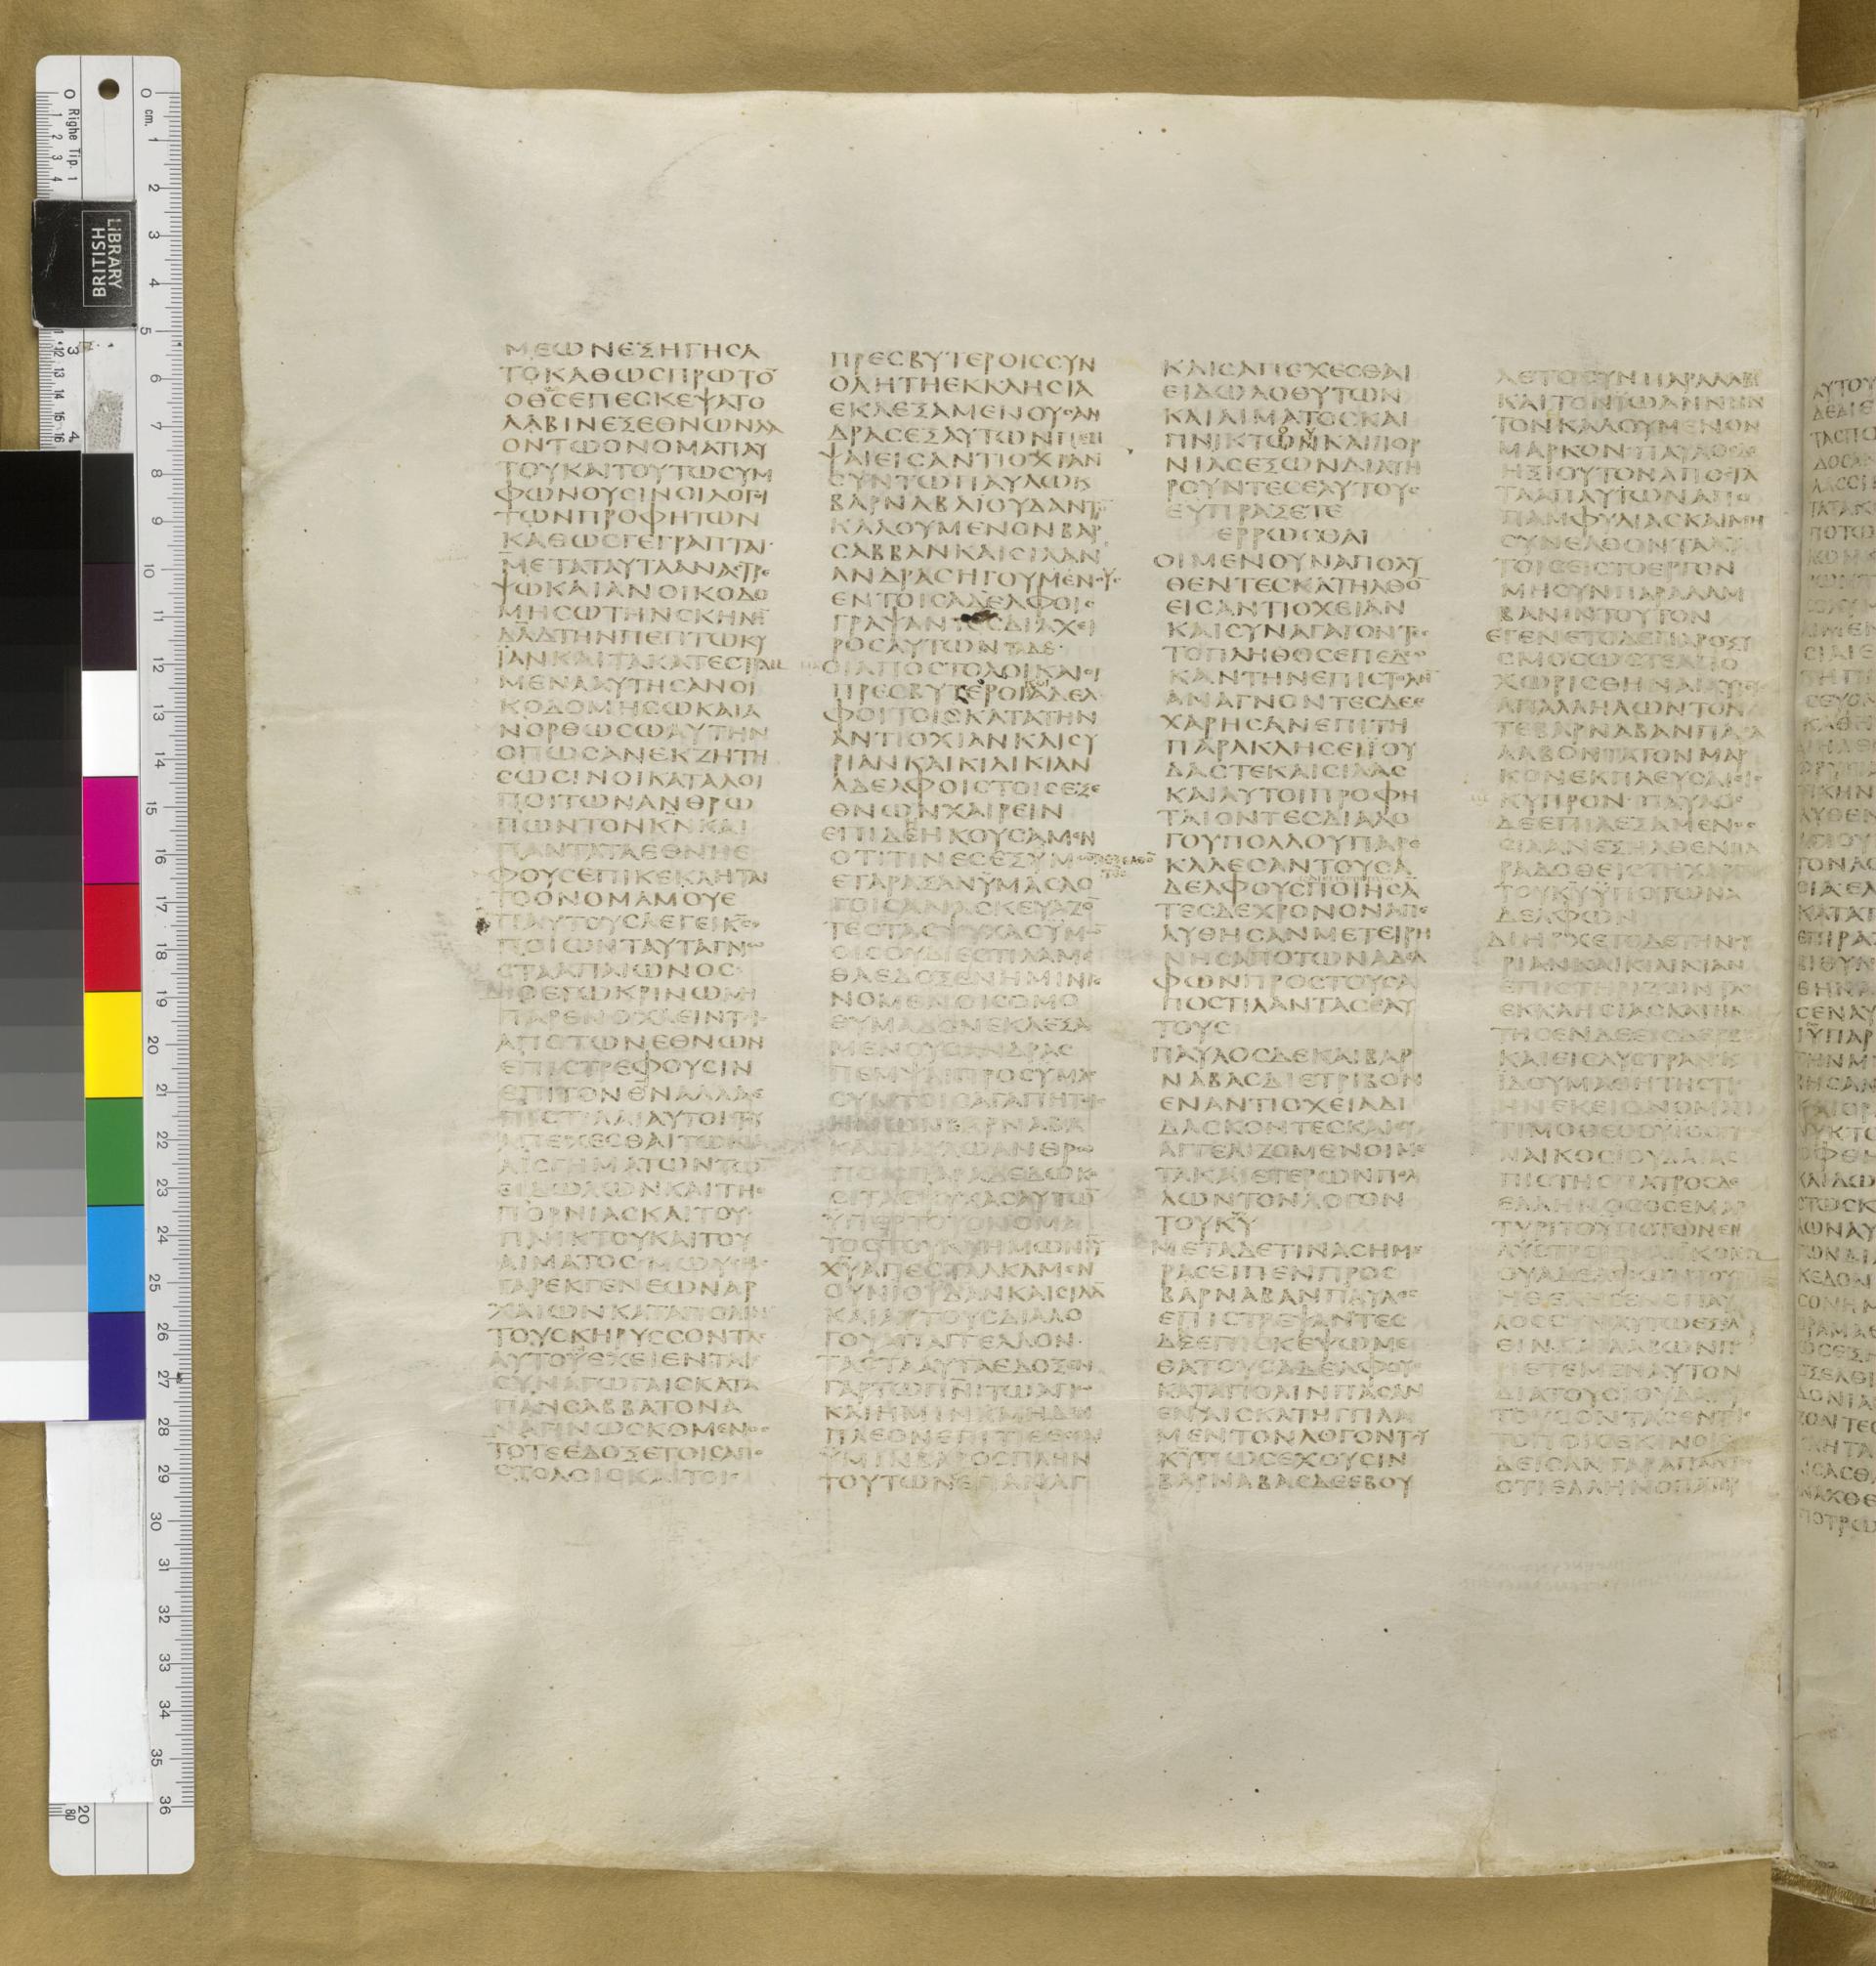 ΜΕΩΝΕΞΗΓΗϹΑ
ΤΟΚΑΘΩϹΠΡΩΤΟ̅
ΟΘ̅ϹΕΠΕϹΚΕΨΑΤΟ
ΛΑΒΙΝΕΞΕΘΝΩΝΛΑ
ΟΝΤΩΟΝΟΜΑΤΙΑΥ
ΤΟΥΚΑΙΤΟΥΤΩϹΥΜ
ΦΩΝΟΥϹΙΝΟΙΛΟΓΟΙ
ΤΩΝΠΡΟΦΗΤΩΝ
ΚΑΘΩϹΓΕΓΡΑΠΤΑΙ
ΜΕΤΑΤΑΥΤΑΑΝΑϹΤΡΕ
ΨΩΚΑΙΑΝΟΙΚΟΔΟ
ΜΗϹΩΤΗΝϹΚΗΝΗ̅
ΔΑ̅ΔΤΗΝΠΕΠΤΩΚΥ
ΪΑΝΚΑΙΤΑΚΑΤΕϹΤΡΑΜ
ΜΕΝΑΑΥΤΗϹΑΝΟΙ
ΚΟΔΟΜΗϹΩΚΑΙΑ
ΝΟΡΘΩϹΩΑΥΤΗΝ
ΟΠΩϹΑΝΕΚΖΗΤΗ
ϹΩϹΙΝΟΙΚΑΤΑΛΟΙ
ΠΟΙΤΩΝΑΝΘΡΩ
ΠΩΝΤΟΝΚ̅Ν̅ΚΑΙ
ΠΑΝΤΑΤΑΕΘΝΗΕ
ΦΟΥϹΕΠΙΚΕΚΛΗΤΑΙ
ΤΟΟΝΟΜΑΜΟΥΕ
ΠΑΥΤΟΥϹΛΕΓΕΙΚ̅Ϲ̅Ο
ΠΟΙΩΝΤΑΥΤΑΓΝΩ
ϹΤΑΑΠΑΙΩΝΟϹ
ΔΙΟΕΓΩΚΡΙΝΩΜΗ
ΠΑΡΕΝΟΧΛΕΙΝΤΟΙϹ
ΑΠΟΤΩΝΕΘΝΩΝ
ΕΠΙϹΤΡΕΦΟΥϹΙΝ
ΕΠΙΤΟΝΘ̅Ν̅ΑΛΛΑΕ
ΠΙϹΤΙΛΑΙΑΥΤΟΙϹΤΟΥ
ΑΠΕΧΕϹΘΑΙΤΩΝΑ
ΛΙϹΓΗΜΑΤΩΝΤΩ̅
ΕΙΔΩΛΩΝΚΑΙΤΗϹ
ΠΟΡΝΙΑϹΚΑΙΤΟΥ
ΠΝΙΚΤΟΥΚΑΙΤΟΥ
ΑΙΜΑΤΟϹΜΩΥϹΗϹ
ΓΑΡΕΚΓΕΝΕΩΝΑΡ
ΧΑΙΩΝΚΑΤΑΠΟΛΙΝ
ΤΟΥϹΚΗΡΥϹϹΟΝΤΑϹ
ΑΥΤΟΥΕΧΕΙΕΝΤΑΙϹ
ϹΥΝΑΓΩΓΑΙϹΚΑΤΑ
ΠΑΝϹΑΒΒΑΤΟΝΑ
ΝΑΓΙΝΩϹΚΟΜΕΝΟϹ
ΤΟΤΕΕΔΟΞΕΤΟΙϹΑΠΟ
ϹΤΟΛΟΙϹΚΑΙΤΟΙϹ
ΠΡΕϹΒΥΤΕΡΟΙϹϹΥΝ
ΟΛΗΤΗΕΚΚΛΗϹΙΑ
ΕΚΛΕΞΑΜΕΝΟΥϹΑΝ
ΔΡΑϹΕΞΑΥΤΩΝΠΕΜ
ΨΑΙΕΙϹΑΝΤΙΟΧΙΑΝ
ϹΥΝΤΩΠΑΥΛΩΚΑΙ
ΒΑΡΝΑΒΑΙΟΥΔΑΝΤΟ̅
ΚΑΛΟΥΜΕΝΟΝΒΑΡ
ϹΑΒΒΑΝΚΑΙϹΙΛΑΝ
ΑΝΔΡΑϹΗΓΟΥΜΕΝΟΥϹ
ΕΝΤΟΙϹΑΔΕΛΦΟΙϹ
ΓΡΑΨΑΝΤΕϹΔΙΑΧΕΙ
ΡΟϹΑΥΤΩΝΤΑΔΕ
ΟΙΑΠΟϹΤΟΛΟΙΚΑΙΟΙ
ΠΡΕϹΒΥΤΕΡΟΙΑΔΕΛ
ΦΟΙΤΟΙϹΚΑΤΑΤΗΝ
ΑΝΤΙΟΧΙΑΝΚΑΙϹΥ
ΡΙΑΝΚΑΙΚΙΛΙΚΙΑΝ
ΑΔΕΛΦΟΙϹΤΟΙϹΕΞΕ
ΘΝΩΝΧΑΙΡΕΙΝ
ΕΠΙΔΕΗΚΟΥϹΑΜΕΝ
ΟΤΙΤΙΝΕϹΕΞΥΜΩΝ
ΕΤΑΡΑΞΑΝΫΜΑϹΛΟ
ΓΟΙϹΑΝΑϹΚΕΥΑΖΟ̅
ΤΕϹΤΑϹΨΥΧΑϹΫΜΩ̅
ΟΙϹΟΥΔΙΕϹΤΙΛΑΜΕ
ΘΑΕΔΟΞΕΝΗΜΙΝΓΕ
ΝΟΜΕΝΟΙϹΟΜΟ
ΘΥΜΑΔΟΝΕΚΛΕΞΑ
ΜΕΝΟΥϹΑΝΔΡΑϹ
ΠΕΜΨΑΙΠΡΟϹΥΜΑϹ
ϹΥΝΤΟΙϹΑΓΑΠΗΤΟΙϹ
ΗΜΩΝΒΑΡΝΑΒΑ
ΚΑΙΠΑΥΛΩΑΝΘΡΩ
ΠΟΙϹΠΑΡΑΔΕΔΩΚΟ
ϹΙΤΑϹΨΥΧΑϹΑΥΤΩ̅
ΫΠΕΡΤΟΥΟΝΟΜΑ
ΤΟϹΤΟΥΚ̅Υ̅ΗΜΩΝΙ̅Υ̅
Χ̅Υ̅ΑΠΕϹΤΑΛΚΑΜΕΝ
ΟΥΝΙΟΥΔΑΝΚΑΙϹΙΛΑ̅
ΚΑΙΑΥΤΟΥϹΔΙΑΛΟ
ΓΟΥΑΠΑΓΓΕΛΛΟΝ
ΤΑϹΤΑΑΥΤΑΕΔΟΞΕΝ
ΓΑΡΤΩΠ̅Ν̅ΙΤΩΑΓΙΩ
ΚΑΙΗΜΙΝΜΗΔΕΝ
ΠΛΕΟΝΕΠΙΤΙΘΕϹΘΑΙ
ΫΜΙΝΒΑΡΟϹΠΛΗΝ
ΤΟΥΤΩΝΕΠΑΝΑΓ
ΚΑΙϹΑΠΕΧΕϹΘΑΙ
ΕΙΔΩΛΟΘΥΤΩΝ
ΚΑΙΑΙΜΑΤΟϹΚΑΙ
ΠΝΙΚΤΩΝΚΑΙΠΟΡ
ΝΙΑϹΕΞΩΝΔΙΑΤΗ
ΡΟΥΝΤΕϹΕΑΥΤΟΥϹ
ΕΥΠΡΑΞΕΤΕ
ΕΡΡΩϹΘΑΙ
ΟΙΜΕΝΟΥΝΑΠΟΛΥ
ΘΕΝΤΕϹΚΑΤΗΛΘΟ̅
ΕΙϹΑΝΤΙΟΧΕΙΑΝ
ΚΑΙϹΥΝΑΓΑΓΟΝΤΕϹ
ΤΟΠΛΗΘΟϹΕΠΕΔΩ
ΚΑΝΤΗΝΕΠΙϹΤΟΛΗ̅
ΑΝΑΓΝΟΝΤΕϹΔΕΕ
ΧΑΡΗϹΑΝΕΠΙΤΗ
ΠΑΡΑΚΛΗϹΕΙΙΟΥ
ΔΑϹΤΕΚΑΙϹΙΛΑϹ
ΚΑΙΑΥΤΟΙΠΡΟΦΗ
ΤΑΙΟΝΤΕϹΔΙΑΛΟ
ΓΟΥΠΟΛΛΟΥΠΑΡΕ
ΚΑΛΕϹΑΝΤΟΥϹΑ
ΔΕΛΦΟΥϹΠΟΙΗϹΑ̅
ΤΕϹΔΕΧΡΟΝΟΝΑΠΕ
ΛΥΘΗϹΑΝΜΕΤΕΙΡΗ
ΝΗϹΑΠΟΤΩΝΑΔΕΛ
ΦΩΝΠΡΟϹΤΟΥϹΑ
ΠΟϹΤΙΛΑΝΤΑϹΕΑΥ
ΤΟΥϹ
ΠΑΥΛΟϹΔΕΚΑΙΒΑΡ
ΝΑΒΑϹΔΙΕΤΡΙΒΟΝ
ΕΝΑΝΤΙΟΧΕΙΑΔΙ
ΔΑϹΚΟΝΤΕϹΚΑΙΕΥ
ΑΓΓΕΛΙΖΟΜΕΝΟΙΜΕ
ΤΑΚΑΙΕΤΕΡΩΝΠΟΛ
ΛΩΝΤΟΝΛΟΓΟΝ
ΤΟΥΚ̅Υ̅
ΜΕΤΑΔΕΤΙΝΑϹΗΜΕ
ΡΑϹΕΙΠΕΝΠΡΟϹ
ΒΑΡΝΑΒΑΝΠΑΥΛΟϹ
ΕΠΙϹΤΡΕΨΑΝΤΕϹ
ΔΕΕΠΙϹΚΕΨΩΜΕ
ΘΑΤΟΥϹΑΔΕΛΦΟΥϹ
ΚΑΤΑΠΟΛΙΝΠΑϹΑΝ
ΕΝΑΙϹΚΑΤΗΓΓΙΛΑ
ΜΕΝΤΟΝΛΟΓΟΝΤΟΥ
Κ̅Υ̅ΠΩϹΕΧΟΥϹΙΝ
ΒΑΡΝΑΒΑϹΔΕΕΒΟΥ
ΛΕΤΟϹΥΝΠΑΡΑΛΑΒΙ̅
ΚΑΙΤΟΝΪΩΑΝΝΗΝ
ΤΟΝΚΑΛΟΥΜΕΝΟΝ
ΜΑΡΚΟΝΠΑΥΛΟϹΔΕ
ΗΞΙΟΥΤΟΝΑΠΟϹΤΑ
ΤΑΑΠΑΥΤΩΝΑΠΟ
ΠΑΜΦΥΛΙΑϹΚΑΙΜΗ
ϹΥΝΕΛΘΟΝΤΑΑΥ
ΤΟΙϹΕΙϹΤΟΕΡΓΟΝ
ΜΗϹΥΝΠΑΡΑΛΑΜ
ΒΑΝΙΝΤΟΥΤΟΝ
ΕΓΕΝΕΤΟΔΕΠΑΡΟΞΥ
ϹΜΟϹΩϹΤΕΑΠΟ
ΧΩΡΙϹΘΗΝΑΙΑΥΤΟΥϹ
ΑΠΑΛΛΗΛΩΝΤΟΝ
ΤΕΒΑΡΝΑΒΑΝΠΑΡΑ
ΛΑΒΟΝΤΑΤΟΝΜΑΡ
ΚΟΝΕΚΠΛΕΥϹΑΙΕΙϹ
ΚΥΠΡΟΝΠΑΥΛΟϹ
ΔΕΕΠΙΛΕΞΑΜΕΝΟϹ
ϹΙΛΑΝΕΞΗΛΘΕΝΠΑ
ΡΑΔΟΘΕΙϹΤΗΧΑΡΙΤΙ
ΤΟΥΚ̅Υ̅ΫΠΟΤΩΝΑ
ΔΕΛΦΩΝ
ΔΙΗΡΧΕΤΟΔΕΤΗΝϹΥ
ΡΙΑΝΚΑΙΚΙΛΙΚΙΑΝ
ΕΠΙϹΤΗΡΙΖΩΝΤΑϹ
ΕΚΚΛΗϹΙΑϹΚΑΤΗΝ
ΤΗϹΕΝΔΕΕΙϹΔΕΡΒΗ̅
ΚΑΙΕΙϹΛΥϹΤΡΑΝΚΑΙ
ΪΔΟΥΜΑΘΗΤΗϹΤΙϹ
ΗΝΕΚΕΙΟΝΟΜΑΤΙ
ΤΙΜΟΘΕΟϹΫΙΟϹΓΥ
ΝΑΙΚΟϹΙΟΥΔΑΙΑϹ
ΠΙϹΤΗϹΠΑΤΡΟϹΔΕ
ΕΛΛΗΝΟϹΟϹΕΜΑΡ
ΤΥΡΙΤΟΥΠΟΤΩΝΕΝ
ΟΥΑΔΕΛΦΩΝΤΟΥ
ΗΘΕΛΗϹΕΝΟΠΑΥ
ΛΟϹϹΥΝΑΥΤΩΕΞΕΛ
ΘΙΝΚΑΙΛΑΒΩΝΠΕ
ΡΙΕΤΕΜΕΝΑΥΤΟΝ
ΔΙΑΤΟΥϹΙΟΥΔΑΙΟΥϹ
ΤΟΥϹΟΝΤΑϹΕΝΤΟΙϹ
ΤΟΠΟΙϹΕΚΙΝΟΙϹ
ΔΕΙϹΑΝΓΑΡΑΠΑΝΤΕϹ
ΟΤΙΕΛΛΗΝΟΠΑΤΗΡ
BRITISH
LIBRARY